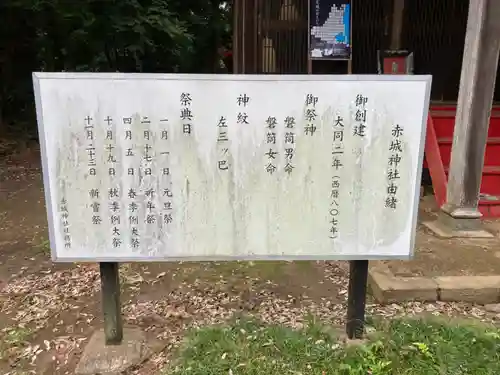 赤城神社由緒
御創建
大同二年（西暦八〇七年）
御祭神
磐筒男命
磐筒女命
神紋
左三ッ巴
祭典日
一月一日　元旦祭
二月十七日　祈年祭
四月五日　春季例大祭
十月十九日　秋季例大祭
十一月二十三日　新嘗祭
赤城神社社務所